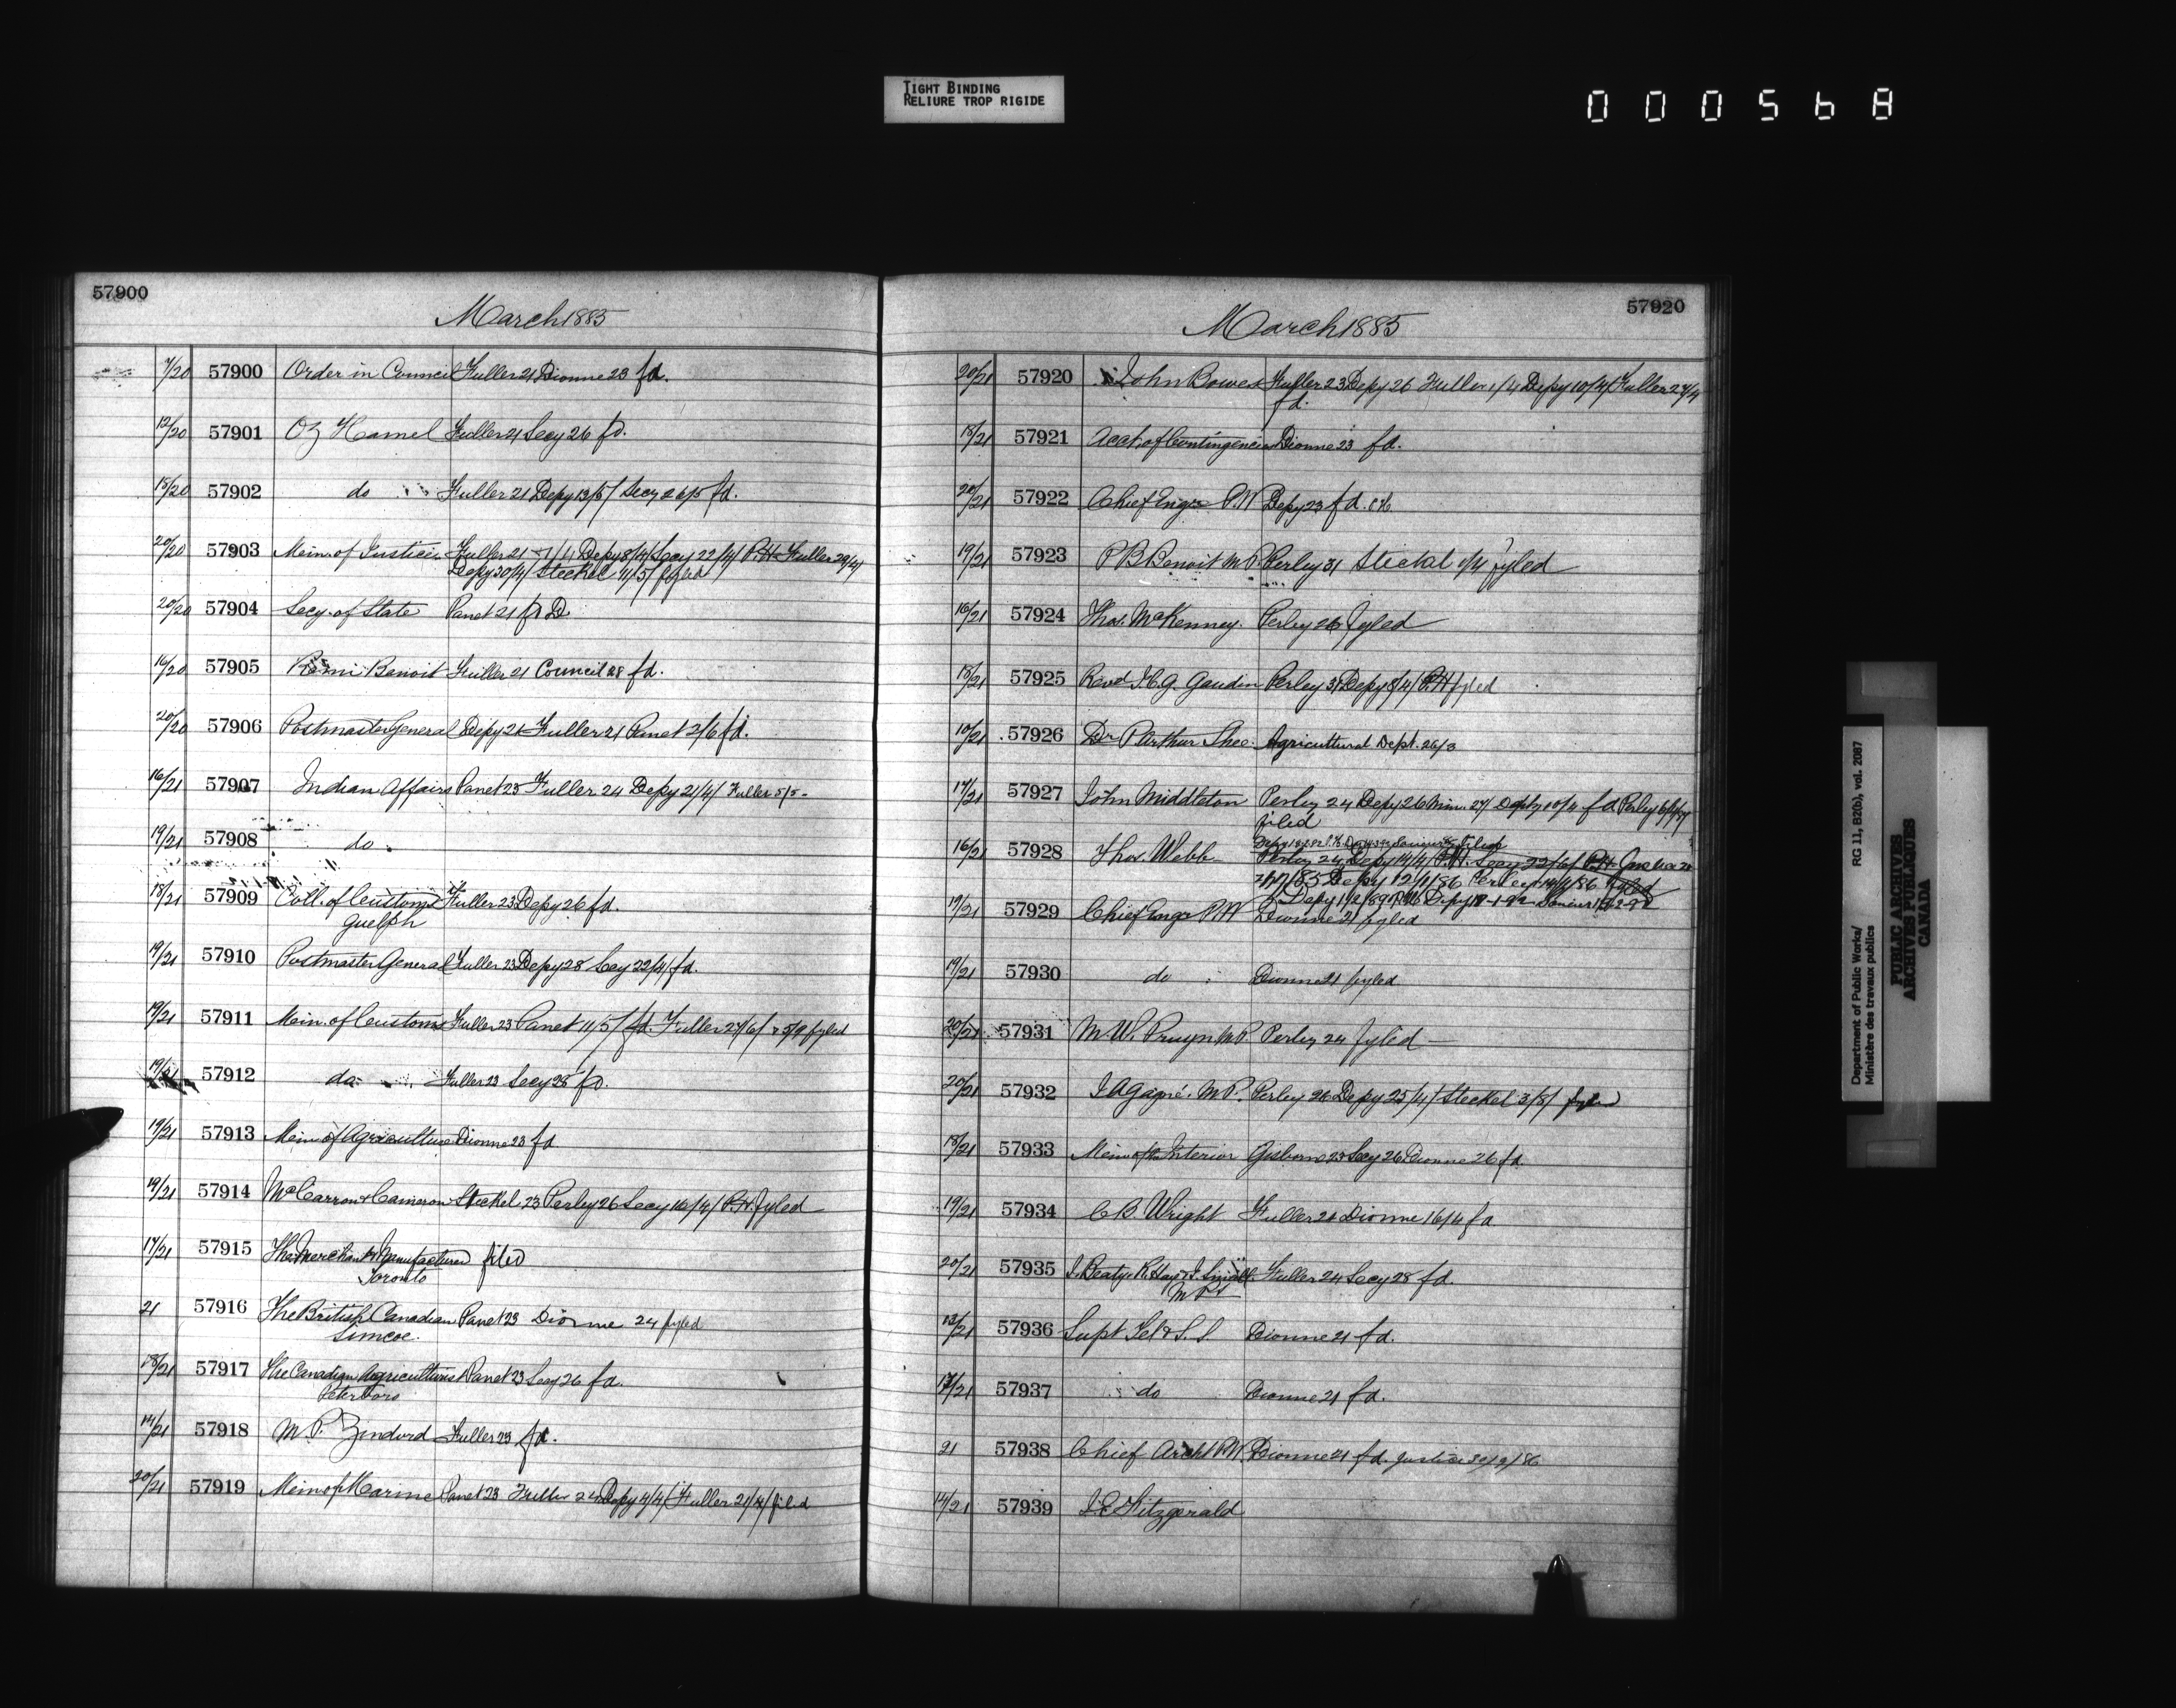 TIGHT BINDING
RELIURE TROP RIGIDE
000568
57900
March 1885
7/20 57900 Order in Council Fuller 21 Dionne 23 fd.
12/20 57901 Oz Hamel Fuller 21 Secy 26 fd.
18/20 57902 do Fuller 21 Depy 13/5/ Secy 26/5 fd.
20/20 57903 Min. of Justice Fuller 21 Depy 8/4/ Secy 22/4/ P.H. Fuller 29/4/
Depy 30/4/ Steckel 4/5/ fyled
20/20 57904 Secy. of State Panet 21
16/20 57905 Remi Benoit Fuller 21 Council 28 fd.
20/20 57906 Postmaster General Depy 21 Fuller 21 Panet 2/6 fd.
16/21 57907 Indian Affairs Panet 23 Fuller 24 Depy 21/4/ Fuller 5/5 -
19/21 57908 do
18/21 57909 Coll. of Customs Fuller 23 Depy 26 fd.
Guelph
19/21 57910 Postmaster General Fuller 23 Depy 28 Secy 22/4/ fd.
19/21 57911 Min. of Customs Fuller 23 Panet 11/5/ fd. Fuller 27/6/ fyled
19/21 57912 do Fuller 23 Secy 28 fd.
19/21 57913 Min of Agriculture Dionne 23 fd
19/21 57914 McCarron & Cameron Steckel 23 Perley 26 Secy 16/4/ P.H. fyled
17/21 57915 The Merchant & Manufacturer filed
Toronto
21 57916 The British Canadian Panet 23 Dionne 24 fyled
Simcoe.
18/21 57917 The Canadian Agriculturist Panet 23 Secy 26 fd.
Peterboro
14/21 57918 M. P. Fuller 23 fd.
20/21 57919 Min of Marine Panet 23 Fuller 24 Depy 4/4/ Fuller 21/4/ filed
57920
March 1885
20/21 57920 John Bowes Fuller 23 Depy 26 Fuller 1/4 Depy 10/4/ Fuller 27/4
fd.
18/21 57921 Acct. of Contingencies Dionne 23 fd.
20/21 57922 Chief Engr P.W Depy 23 fd.
19/21 57923 P B Benoit M P. Perley 31 Steckel 1/4/ fyled
16/21 57924 Thos. McKenney. Perley 26 fyled
18/21 57925 Revd J.C.G. Gaudin Perley 31 Depy 8/4/ P.H fyled
10/21 57926 Dr P Arthur Shee Agricultural Dept. 26/3
17/21 57927 John Middleton Perley 24 Depy 26 Min. 27/ Depty 10/4 fd Perley
filed
16/21 57928 Thos. Webb
Perley 24 Depy 14/4/ P.H. Secy 22/6/ P.H.
Depy 12/1/86 Perley 14/1/86 fyled
19/21 57929 Chief Engr P W Dionne 21 fyled
19/21 57930 do Dionne 21 fyled
20/21 57931 M. W. Pruyn M.P. Perley 24 fyled
20/21 57932 M.P. Perley 26 Depy 25/4/ Steckel 3/8/ fyled
18/21 57933 Min of the Interior Gisborne 23 Secy 26 Dionne 26 fd.
19/21 57934 C B. Wright Fuller 24 Dionne 16/4 fd
20/21 57935 J. Beaty. R. Hay & J. Small Fuller 24 Secy 28 fd.
M Ps
13/21 57936 Supt Tel & S. S. Dionne 21 fd.
57937 do Dionne 21 fd.
21 57938 Chief Archt P.W. Dionne 21 fd. Justice 30/9/86
14/21 57939 J. E. Fitzgerald
Department of Public Works/
Ministère des travaux publics
RG 11, B2(b), vol. 2087
PUBLIC ARCHIVES
ARCHIVES PUBLIQUES
CANADA